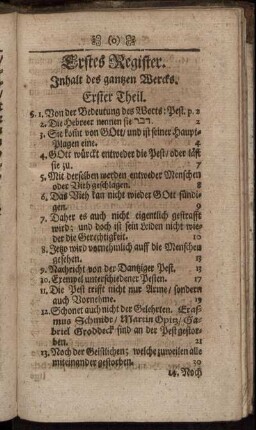 (o)
Erstes Register.
Inhalt des gantzen Wercks.
Erster Theil.
§. 1. Von der Bedeutung des Worts: Pest. p. 2
2. Die Hebreer nennen sie דבר. 2
3. Sie kömt von GOtt/ und ist seiner Haupt-
Plagen eine. 4
4. GOtt würckt entweder die Pest/ oder läst
sie zu. 7
5. Mit derselben werden entweder Menschen
oder Vieh geschlagen. 8
6. Das Vieh kan nicht wieder GOtt sündi-
gen. 9
7. Daher es auch nicht eigentlich gestrafft
wird; und doch ist sein Leiden nicht wie-
der die Gerechtigkeit. 10
8. Jetzo wird vornehmlich auff die Menschen
gesehen. 13
9. Nachricht von der Dantziger Pest. 13
10. Exempel unterschiedener Pesten. 17
11. Die Pest trifft nicht nur Arme/ sondern
auch Vornehme. 19
12. Schonet auch nicht der Gelehrten. Eraß-
mus Schmidt/ Martin Opitz/ Ga-
briel Groddeck sind an der Pest gestor-
ben. 21
13. Noch der Geistlichen; welche zuweilen alle
miteinander gestorben. 30
14. Noch